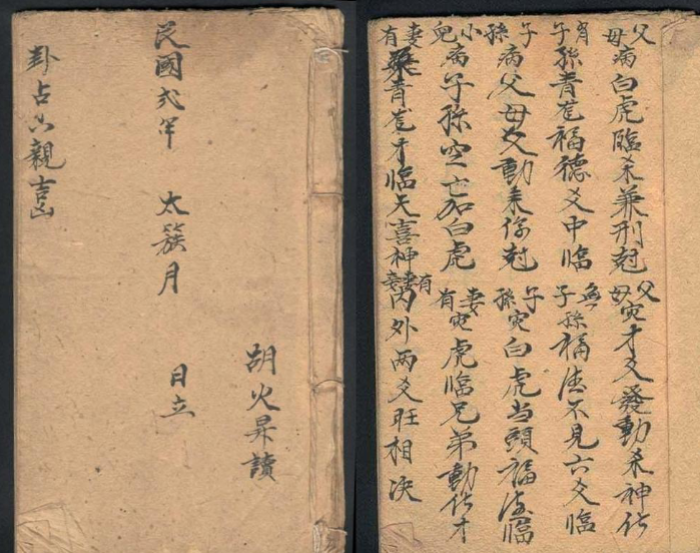 胡火昇讀
民國弍年 太簇月 日立
卦占六親吉凶
父母病白虎臨杀兼刑尅 父母灾才爻發動杀神化
有子孫青龍福德爻中臨 無子孫福德不見六爻臨
子孫病父母爻動来傷尅 子孫灾白虎当頭福德臨
小兒病子孫空亡加白虎 妻有灾虎臨兄弟動化才
妻有孕青龍才臨天喜神 有妻妾内外两爻旺相決